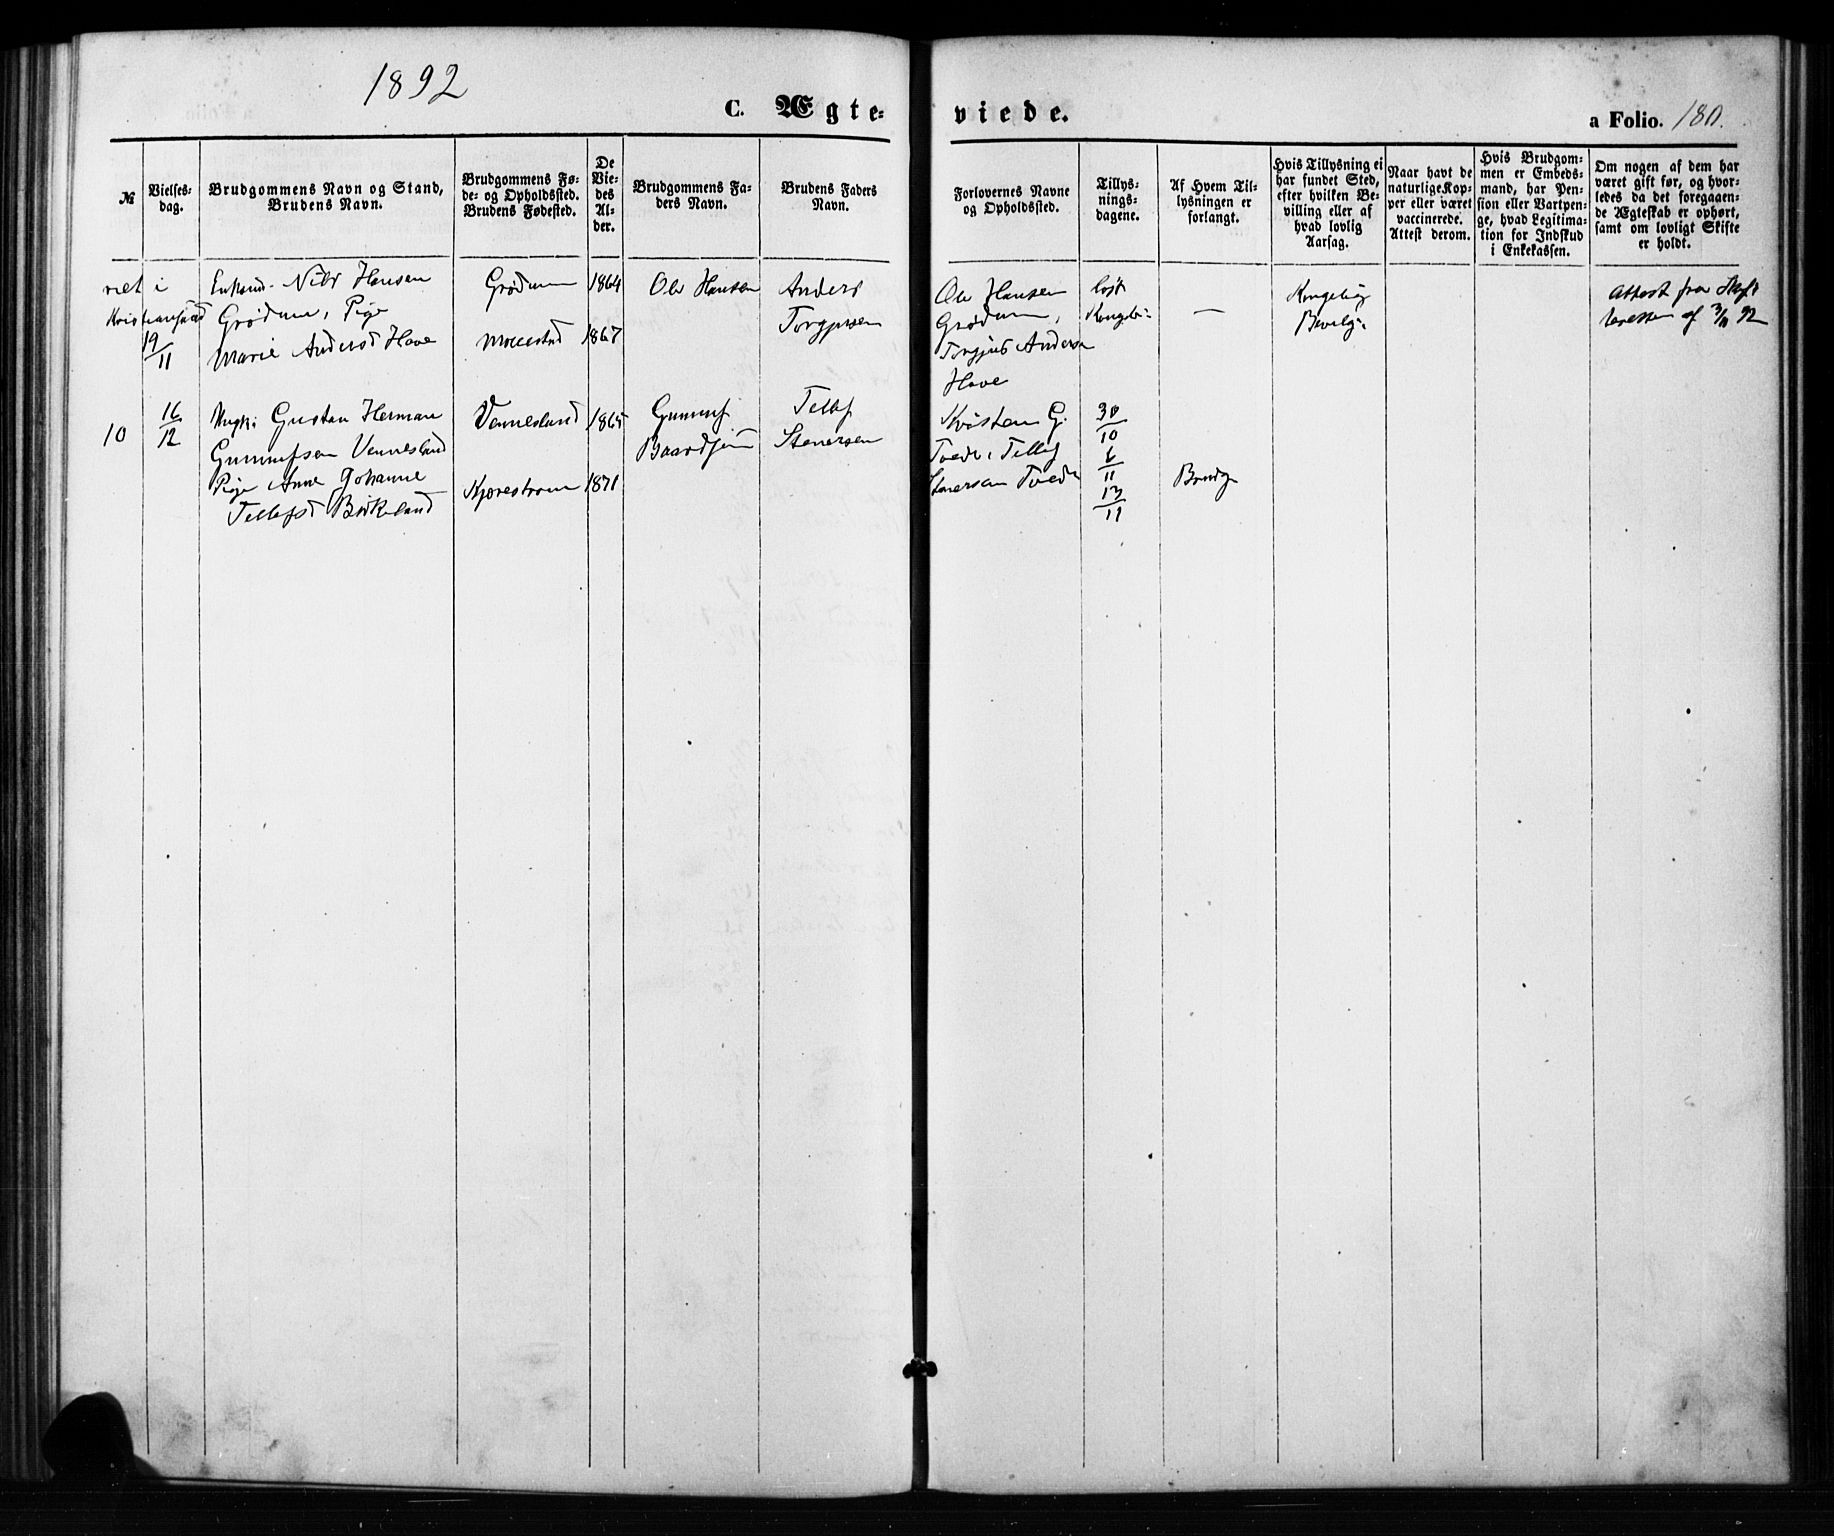 1892
C. Ægte-
viede.
a Folio. 180.
№
Vielses-
dag.
Brudgommens Navn og Stand,
Brudens Navn.
Brudgommens Fø-
de- og Opholdssted.
Brudens Fødested.
De
Vie-
des
Al-
der.
Brudgommens Fa-
ders Navn.
Brudens Faders
Navn.
Forlovernes Navne
og Opholdssted.
Tillys-
nings-
dagene.
Af Hvem Til-
lysningen er
forlangt.
Hvis Tillysning ei
har fundet Sted,
efter hvilken Be-
villing eller af
hvad lovlig
Aarsag.
Naar havt de
naturlige Kop-
per eller været
vaccinerede.
Attest derom.
Hvis Brudgom-
men er Embeds-
mand, har Pen-
sion eller Vartpen-
ge, hvad Legitima-
tion for Indskud
i Enkekassen.
Om nogen af dem har
været gift før, og hvor-
ledes da det foregaaen-
de Ægteskab er ophørt,
samt om lovligt Skifte
er holdt.
viet i
Kristiansand
19/11
Enkemd. Nils Hansen
Grødum, Pige
Marie Andersd Have
Grødum
1864
1867
Ole Hansen
Anders
Torgjusen
Ole Hansen
Grødum,
Torgjus Andersen
Have
løst
Kongebr.
—
Kongelig
Bevilg.
Attest fra Skift
teretten af 3/11 92
10
16/12
Ungk. Gustav Herman
Gunnufsen Vennesland
Pige Anne Johanne
Tellefsd Birkeland
Vennesland
Kjørestrøm
1865
1871
Gunnuf
Baardsen
Tellef
Stenersen
Kristen G.
Tvedt, Tellef
Stenersen Tvedt
30/10
6/11
13/11
Brudg